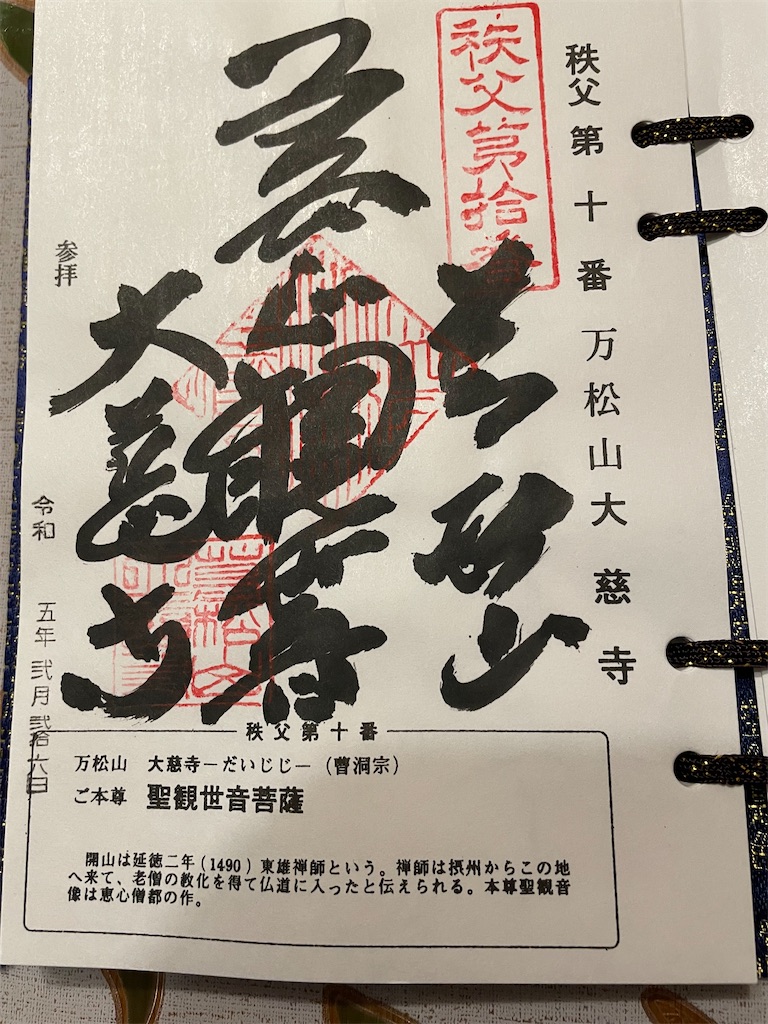 秩父第十番 万松山大慈寺
秩父第拾番
万松山
聖観世音
大慈寺
参拝
令和 五年 弐月 弐拾六日
秩父第十番
万松山 大慈寺－だいじじ－（曹洞宗）
ご本尊 聖観世音菩薩
開山は延徳二年（1490）東雄禅師という。禅師は摂州からこの地
へ来て、老僧の教化を得て仏道に入ったと伝えられる。本尊聖観音
像は恵心僧都の作。